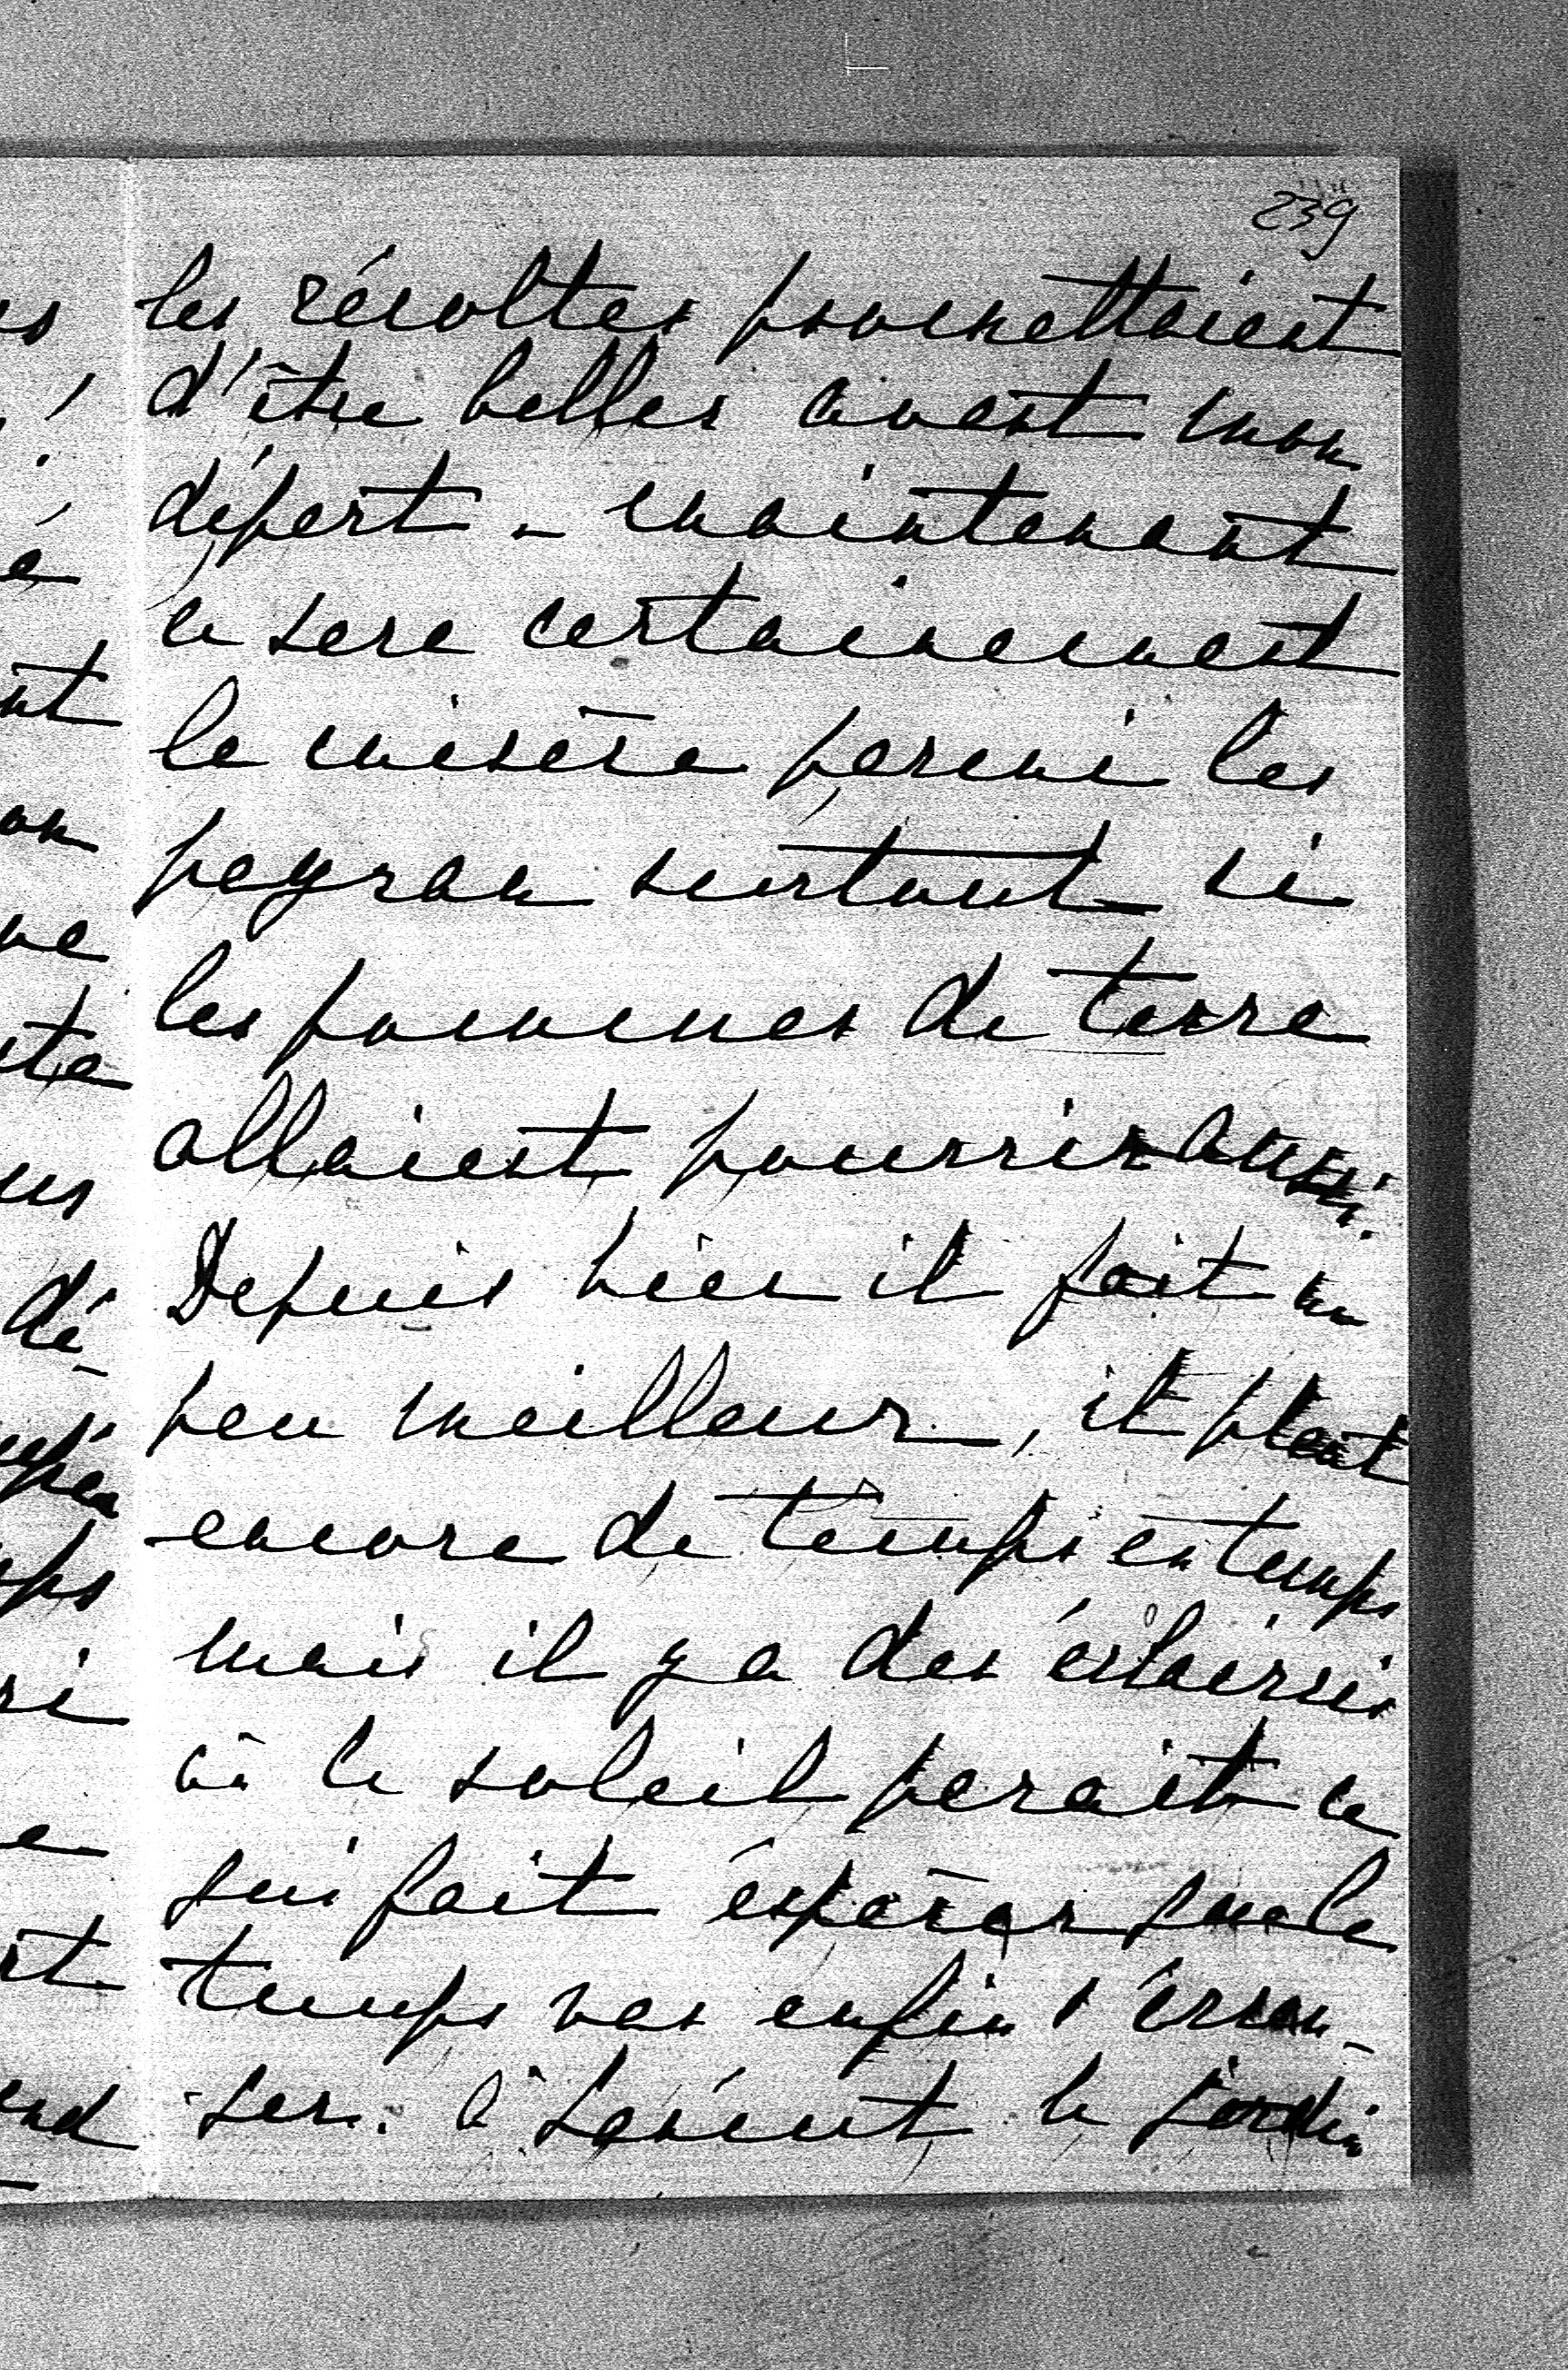 239
les récoltes promettaient
d'être belles avant mon
départ - maintenant
ce sera certainement
la misère parmi les
paysans surtout si
les pommes de terre
allaient pourrir aussi.
Depuis hier il fait un
peu meilleur, il pleut
encore de temps en temps
mais il y a des éclaircis
où le soleil parait ce
qui fait éspèrer que le
temps vas enfin s'arran-
ger. à Laeken le jardin